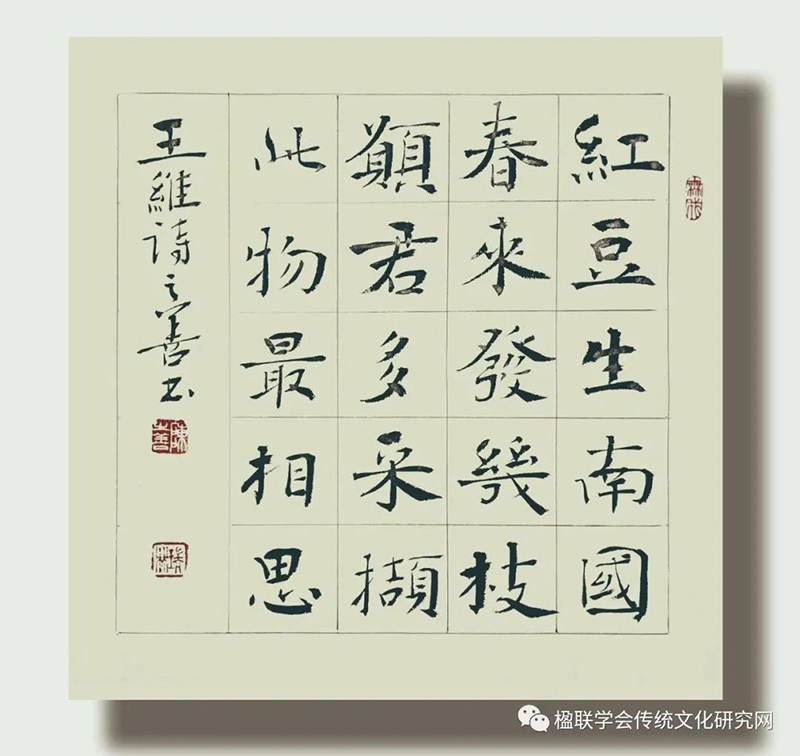 紅豆生南國
春來發幾枝
願君多采擷
此物最相思
王維詩之善书
楹联学会传统文化研究网